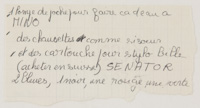 pour faire cadeau a
MINO
des chaussettes comme viseur
et des cartouche pour stylo bille
(acheter en suisse) SENATOR
2 bleues, 1 noir, une rouge, une verte